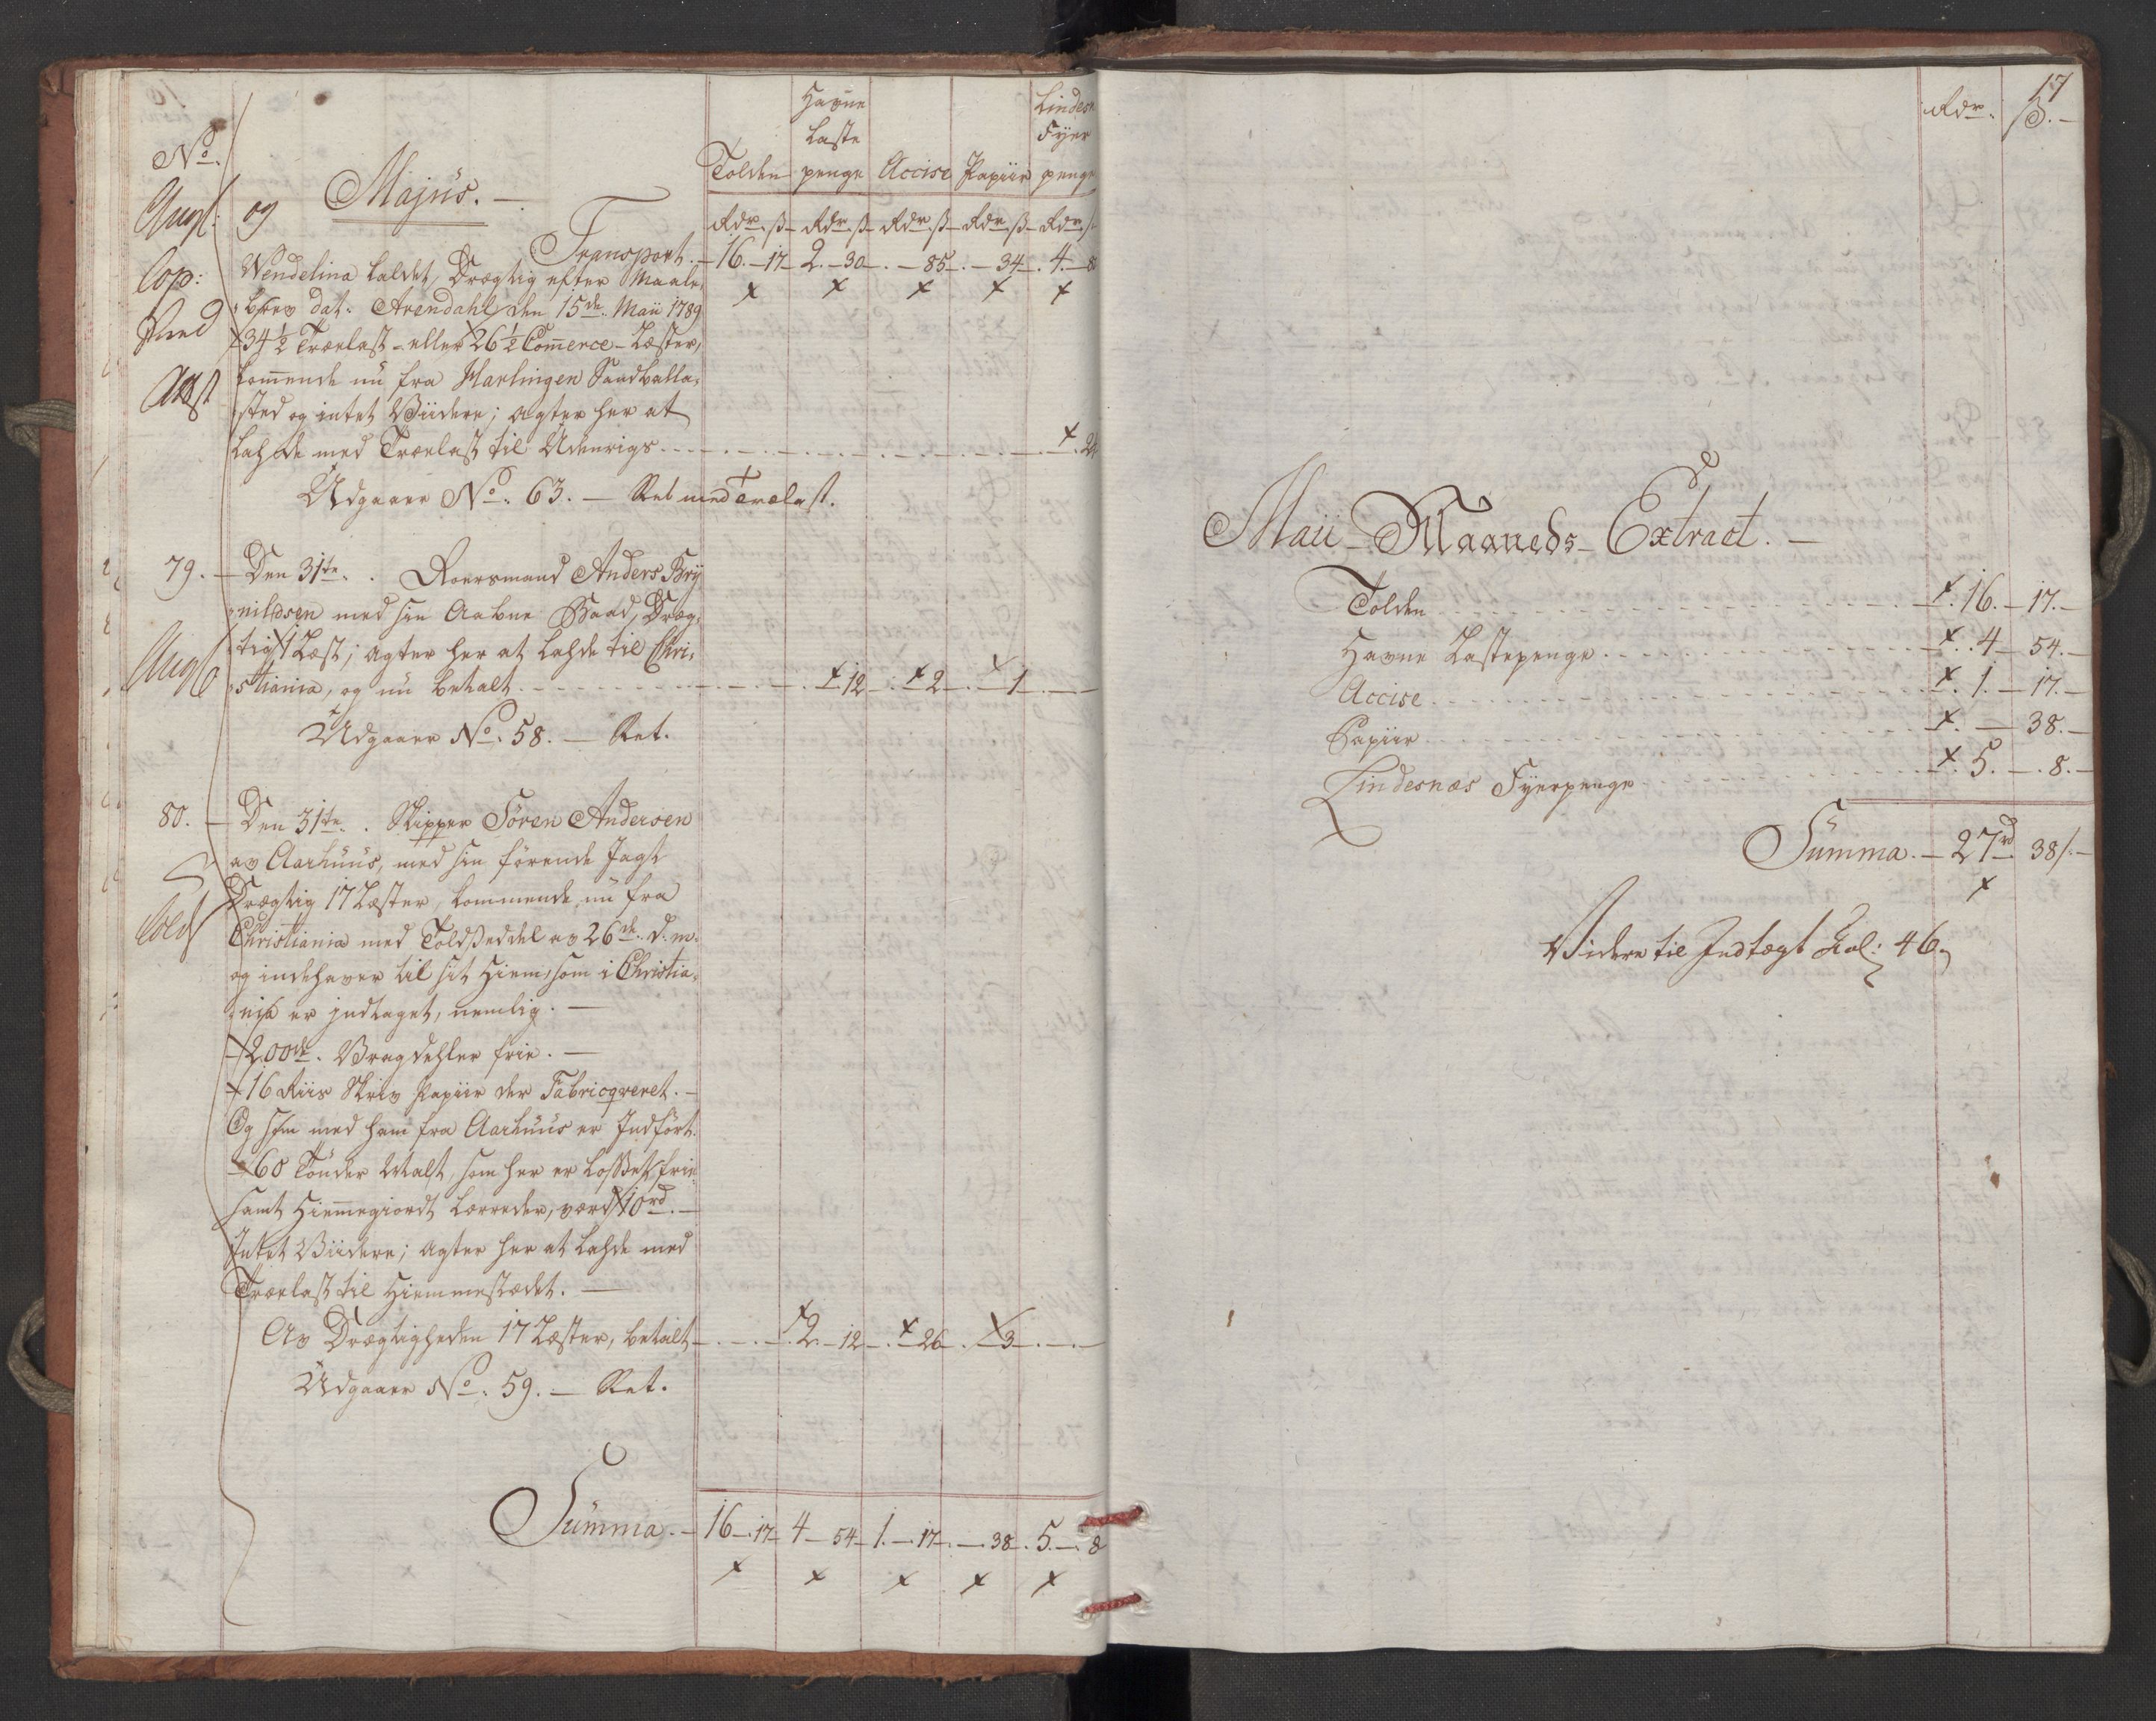 No.
Majus. —
Havne
Laste
Lindesn
Fyer
Tolden penge Accise Papiir penge
Rdr. ß Rdr. ß Rdr. ß Rdr. ß Rdr. ß
og
Transport. — 16. — 17 — 2. — 30 — . — 85 — . — 34 — . 4. — 80
Wendelina kaldet, Drægtig efter Maale-
brev dat: Arendahl den 15de Maii 1789
34 1/2 Trælast - eller 26 1/2 Com̄erce - Læster,
kom̄ende nu fra Harlingen Sandballa-
sted og intet Viidere; agter her at
lahde med Trælast til Udenrigs . . . . 24
Udgaaer No. 63. — Ret med Trælast.
79. — Den 31te. Roersmand Anders Bry
nildsen med sin Aabne Baad, Dræg-
tig 1 Læst; agter her at lahde til Chri-
stiania, og nu betalt . . . 12 — . 2 — . 1 . —
Udgaaer No. 58. — Ret.
80. — Den 31te. Skipper Sören Andersen
av Aarhuus, med sin förende Jagt
Drægtig 17 Læster, kommende nu fra
Christiania med Toldseddel av 26de d. m.
og indehaver til sit Hiem, som i Christia-
nia er indtaget, nemlig. —
200de. Vragdehler frie. —
16 Riis Skriv Papiir der Fabricqveret. —
Og som med ham fra Aarhuus er Indfört.
60 Tönder Malt, som her er losset, frie
samt Hiem̄egiordt Lærreder, værd 10rd. —
Intet Viidere; agter her at lahde med
Trælast til Hiemmestædet. —
Av Drægtigheden 17 Læster, betalt — . . . 2. — 12 — . 26 — . 3 — . —
Udgaaer No. 59. — Ret.
Summa. — 16 — 17 — 4 — 54 — 1. — 17 — . — 38 . 5. — 8
17
Rdr. ß. —
Maii - Maaneds - Extract. —
Tolden . . . 16. — 17. —
Havne Lastepenge . . . 4 — 54. —
Accise . . . 1. — 17. —
Papiir . . . — 38. —
Lindesnæs Fyerpenge . . . 5. — 8. —
Summa. — 27rd. 38ß. —
Videre til Indtægt Fol: 46.